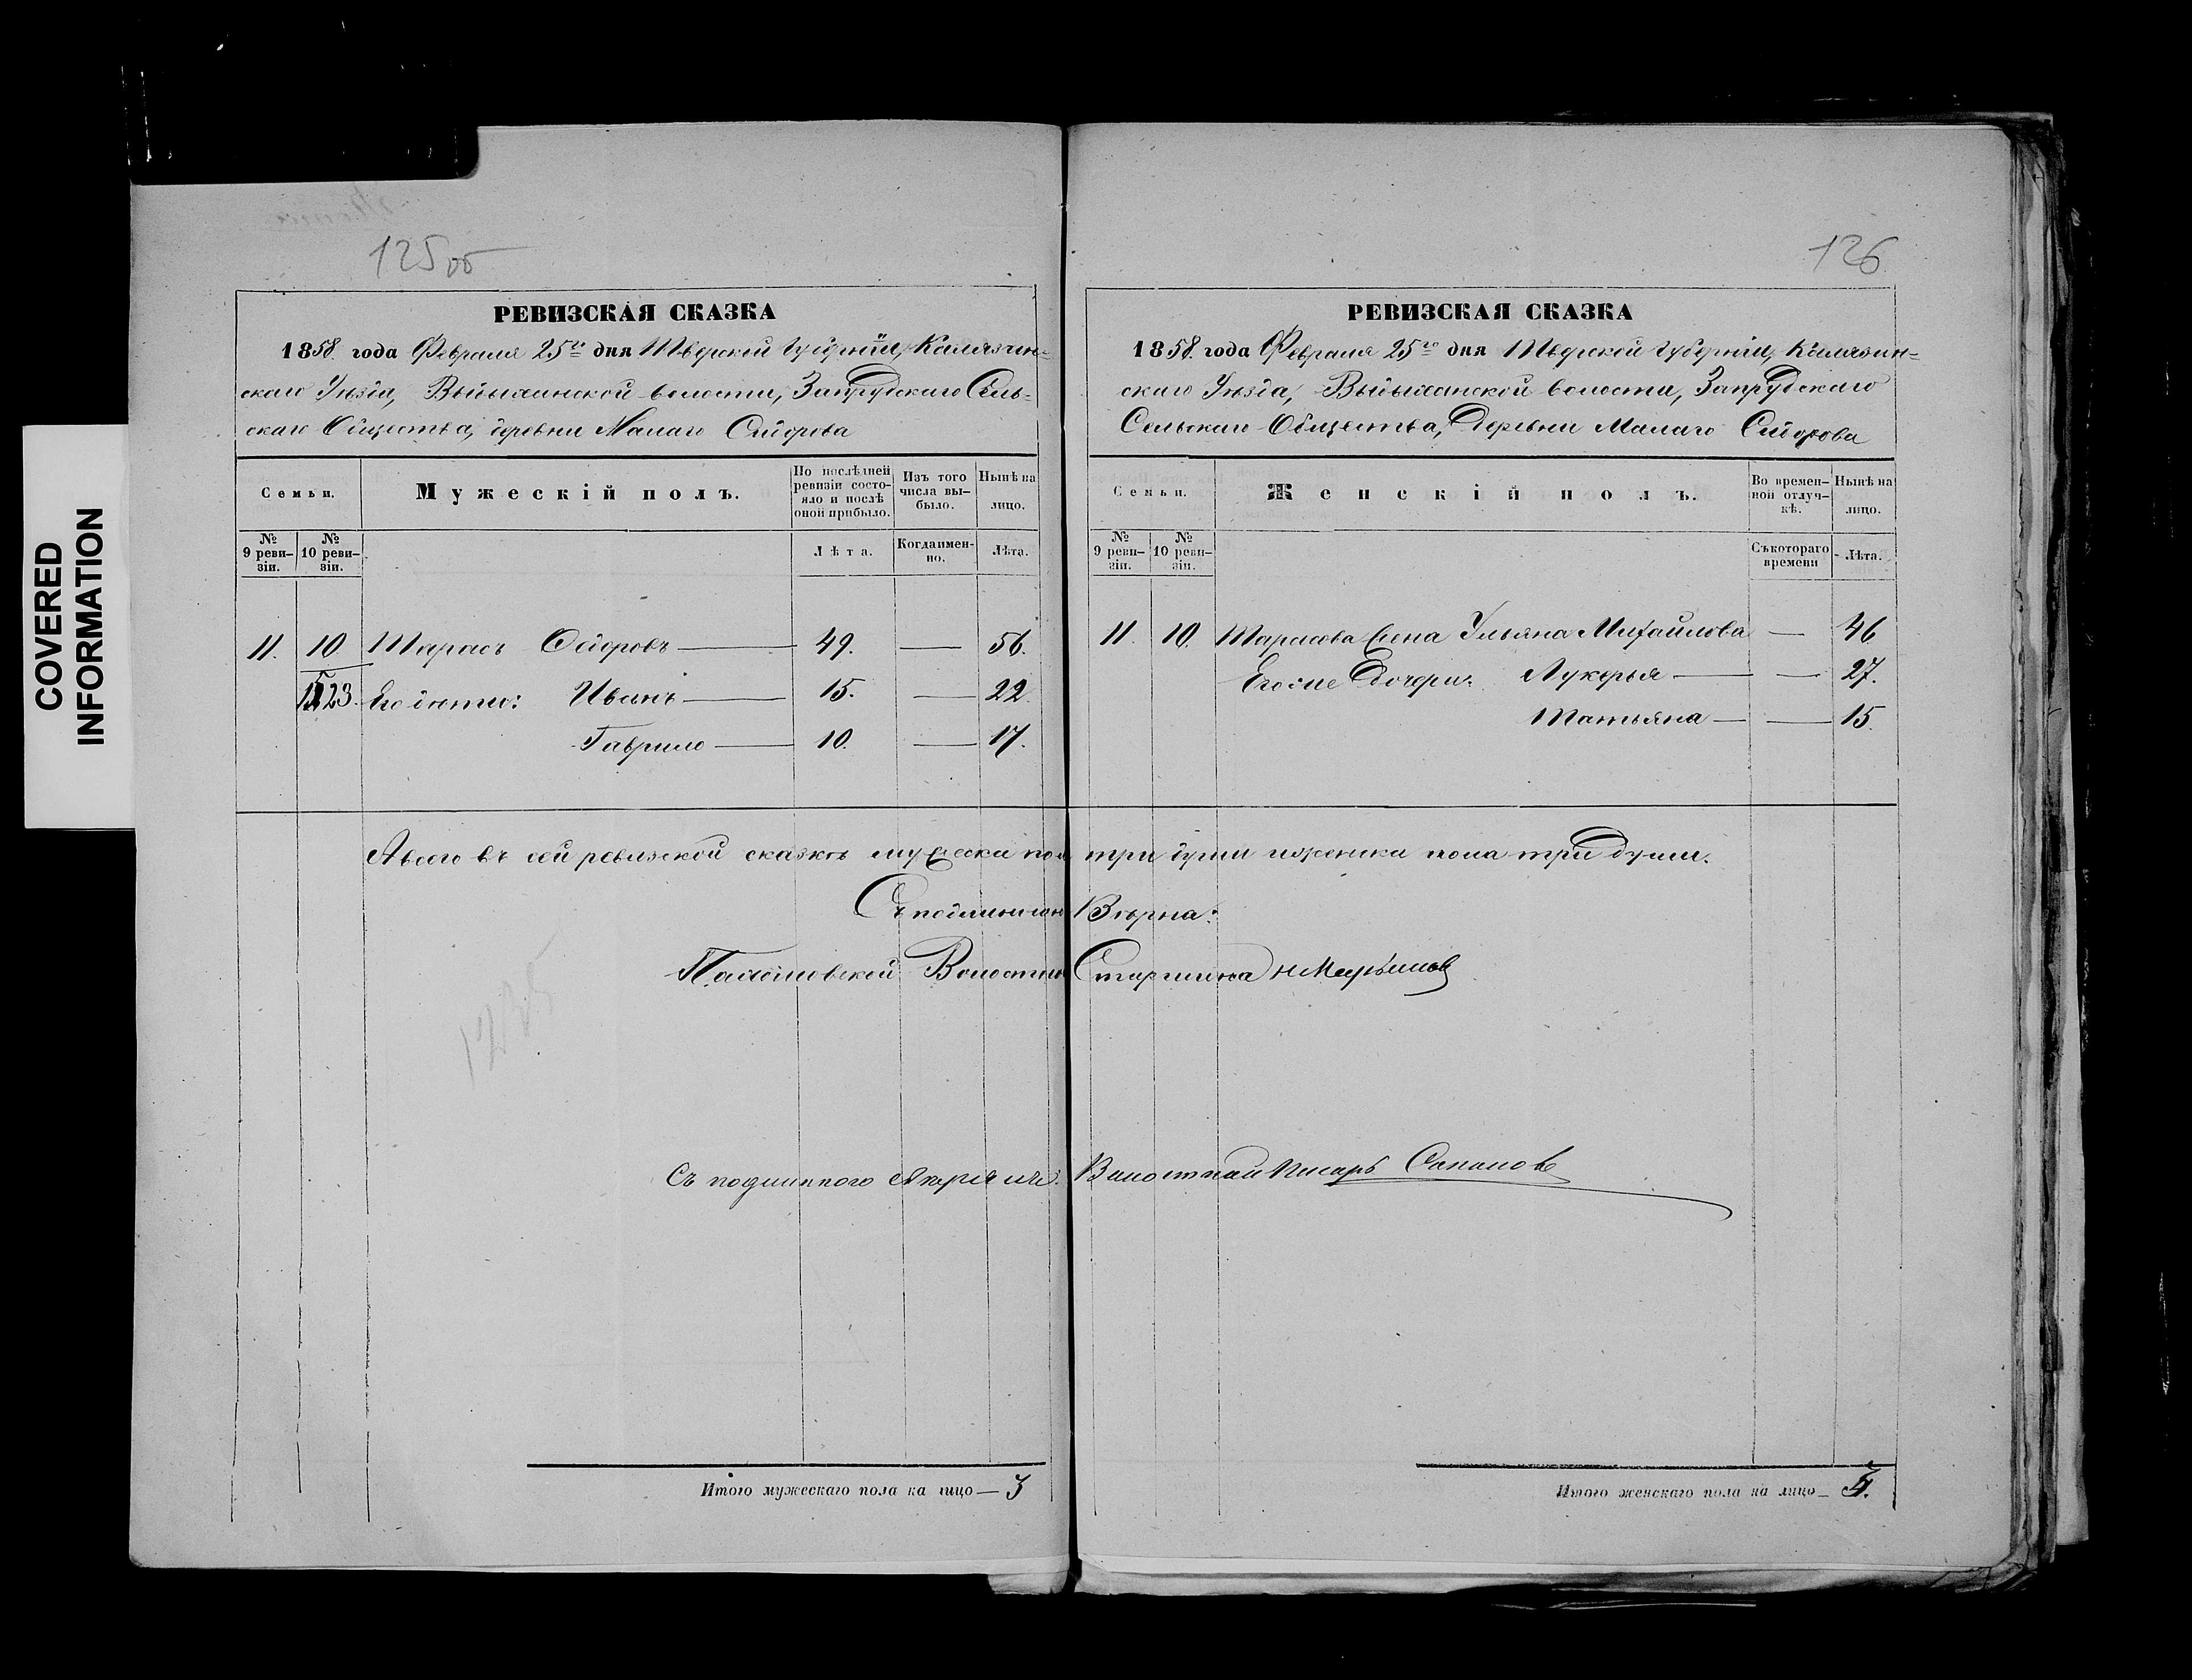 COVERED
INFORMATION
125 об
РЕВИЗСКАЯ СКАЗКА
1858. года Февраля 25го дня Тверской Губерніи, Калязин=
скаго Уѣзда, волости, Запрудскаго Сель-
скаго Общества, деревни Малаго Сидорова
Семьи.
Мужескій полъ.
По послѣдней ревизіи состояло и послѣ оной прибыло.
Изъ того числа выбыло.
Нынѣ на лицо.
№ 9 ревизіи.
№ 10 ревизіи.
Лѣта.
Когда именно.
Лѣта.
11. 10 Тарасъ Сидоровъ — 49. — 56.
23. Его дѣти: Иванъ — 15. — 22.
Гаврило — 10. — 17.
Итого мужескаго пола на лицо — 3
126
РЕВИЗСКАЯ СКАЗКА
1858. года Февраля 25го дня Тверской Губерніи, Калязин=
скаго Уѣзда, волости, Запрудскаго
Сельскаго Общества, Деревни Малаго Сидорова
Семьи.
Женскій полъ.
Во временной отлучкѣ.
Нынѣ на лицо.
№ 9 ревизіи.
№ 10 ревизіи.
Съ котораго времени
Лѣта.
11. 10. Тарасова Жена Ульяна Михайлова — 46
Его же Дочери: Лукерья — — 27.
Татьяна — — 15.
А всего въ сей ревизской сказкѣ мужеска пола три души и женска пола три души.
Съ подлинною Вѣрна:
Волостной Старшина
Съ подлиннаго Волостной Писарь
Итого женскаго пола на лицо — 3.